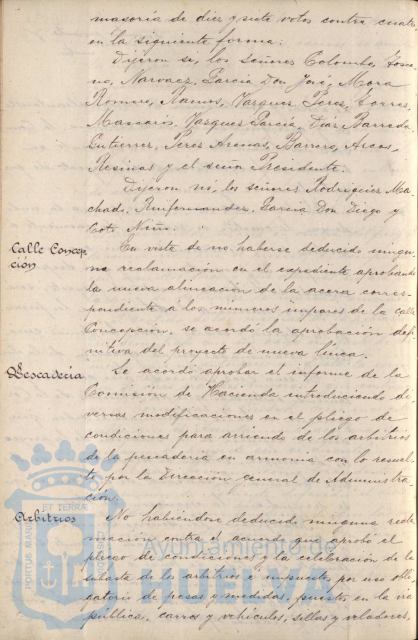 mayoría de diez y siete votos contra cuatro
en la siguiente forma:
Dijeron si, los señores Colombo,
Narvaez, García Don José, Mora
Romero, Ramos, Vazquez Perez, Torres,
Mascarós, Vazquez García, Diaz Barreda
Gutierrez, Perez Arenas, Barrera, Arcos,
Resinas y el señor Presidente.
Dijeron no, los señores Rodriguez Ma-
chado, García Don Diego y
Coto Niño.
Calle Concep-
ción
En vista de no haberse deducido ningu-
na reclamación en el expediente aprobando
la nueva alineación de la acera corres-
pondiente á los números impares de la calle
Concepción, se acordó la aprobación defi-
nitiva del proyecto de nueva línea.
Pescadería
Se acordó aprobar el informe de la
Comisión de Hacienda introduciendo di-
versas modificaciones en el pliego de
condiciones para arriendo de los arbitrios
de la pescadería en armonía con lo resuel-
to por la Dirección general de Administra-
ción.
Arbitrios
No habiéndose deducido ninguna recla-
mación contra el acuerdo que aprobó el
pliego de condiciones para la celebración de la
subasta de los arbitrios é impuestos por uso obli-
gatorio de pesas y medidas, puestos en la vía
pública, carros y vehículos, sillas y veladores,
PORTUS MARIS ET TERRAE
Ayuntamiento de
HUELVA